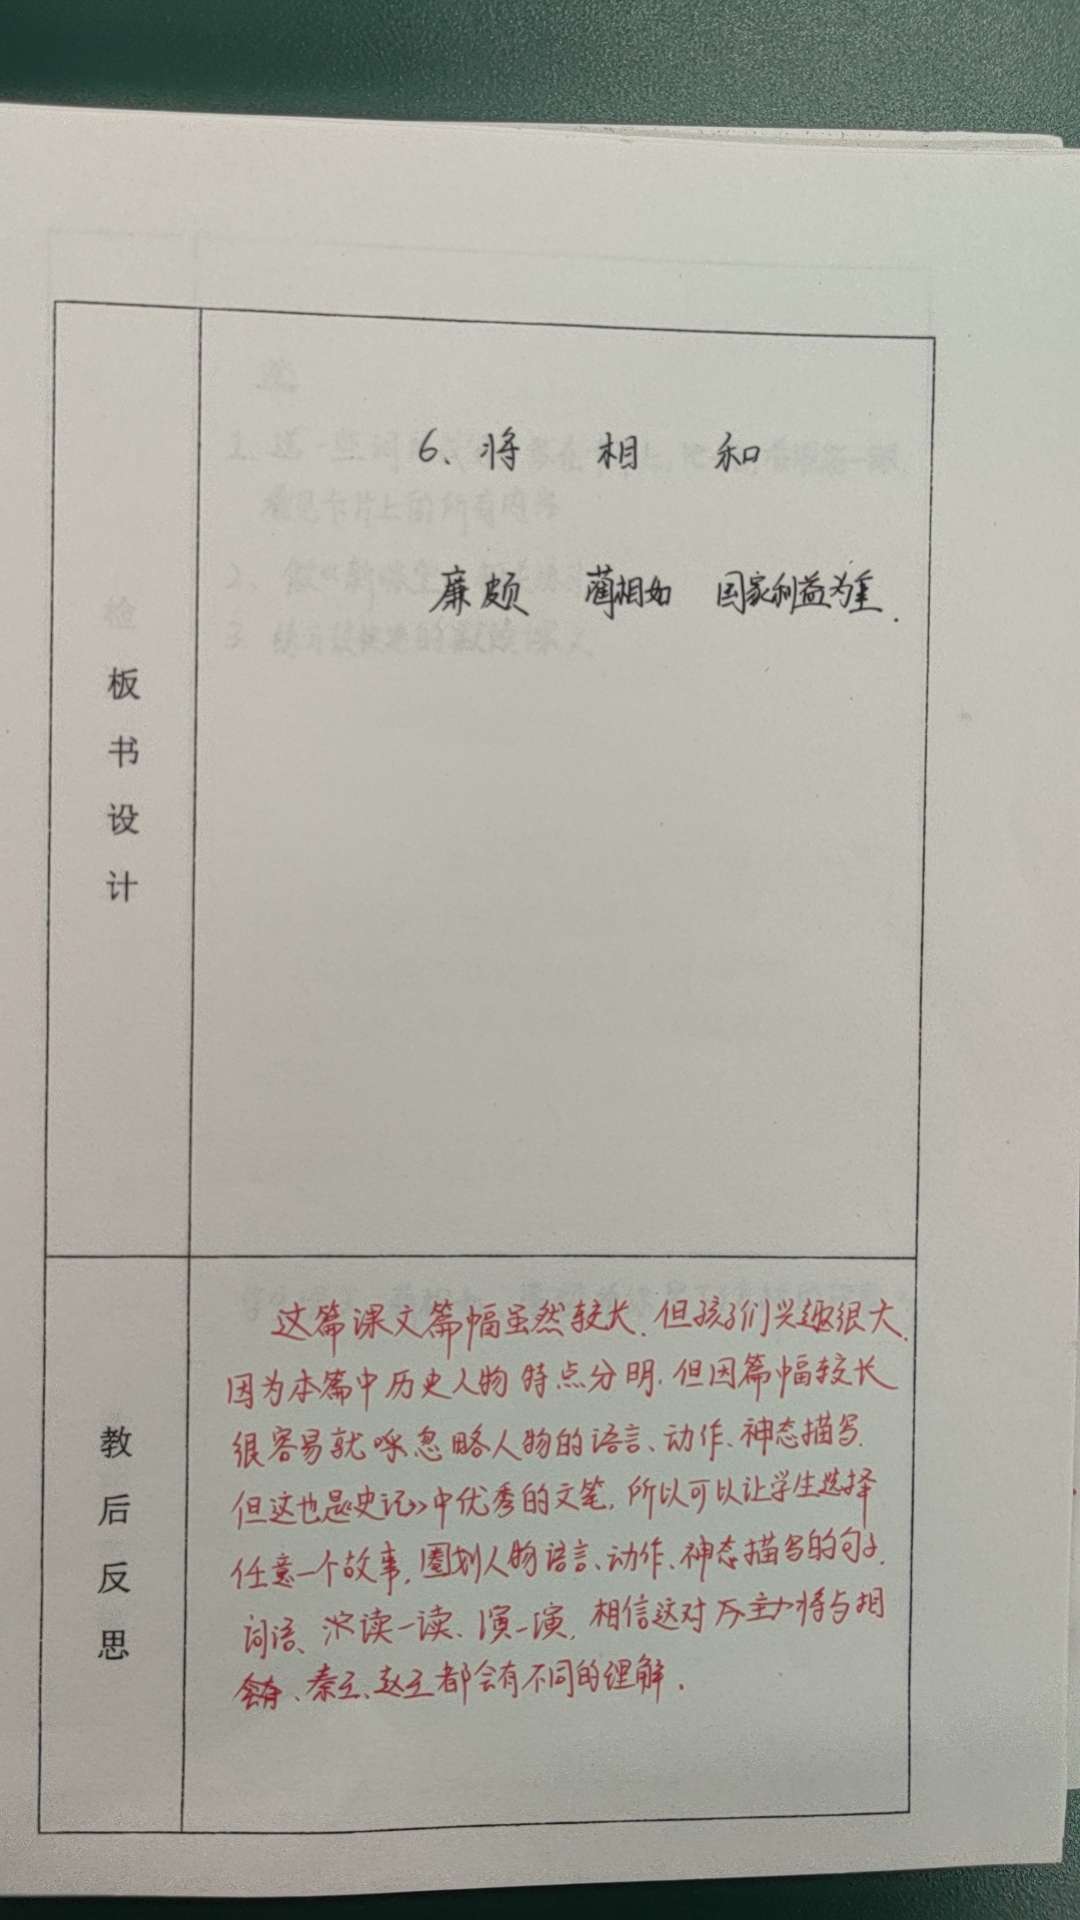 6、将 相 和
廉颇 蔺相如 国家利益为重.
板书设计
这篇课文篇幅虽然较长.但孩子们兴趣很大.
因为本篇中历史人物特点分明.但因篇幅较长
很容易就 忽略人物的语言、动作、神态描写.
但这也是《史记》中优秀的文笔.所以可以让学生选择
任意一个故事.圈划人物语言、动作、神态描写的句子.
词语、 读一读、演一演.相信这对 将与相
、秦王、赵王都会有不同的理解.
教后反思